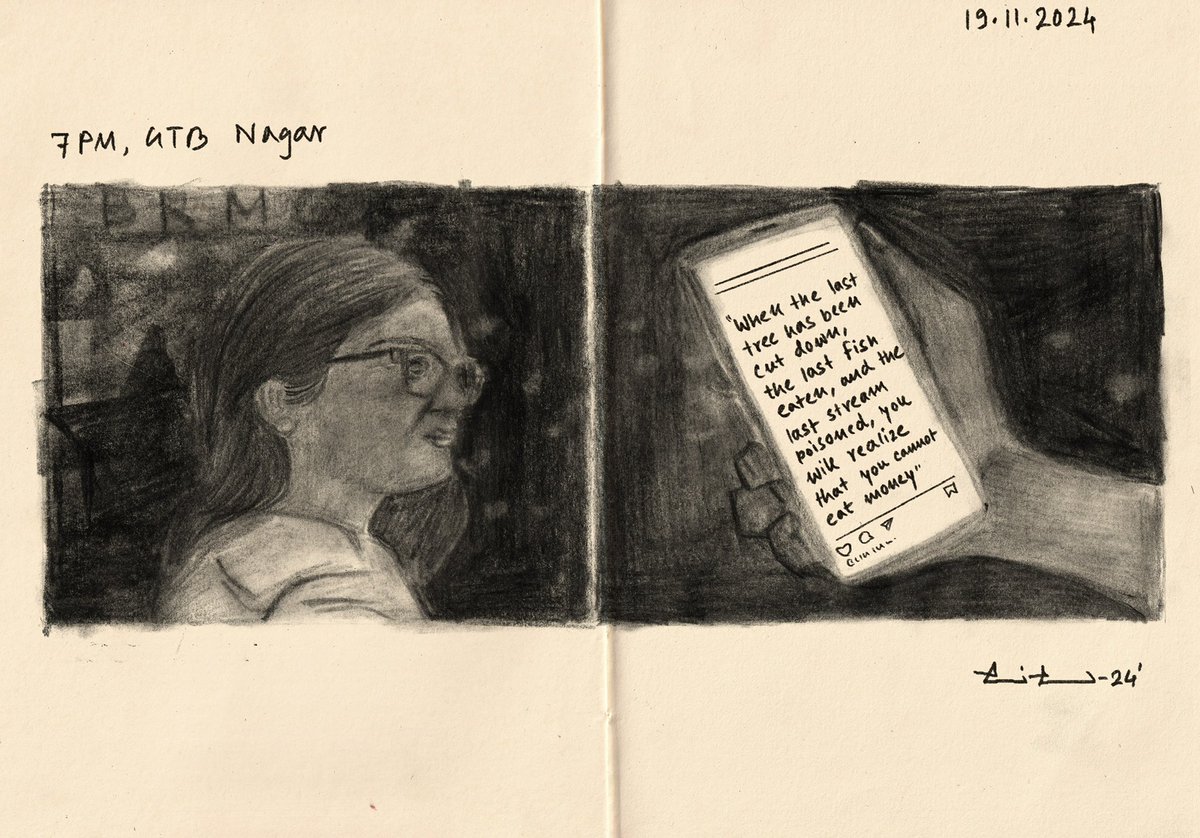 19.11.2024
7PM, GTB Nagar
"When the last
tree has been
cut down,
the last fish
eaten, and the
last stream
poisoned, you
will realize
that you cannot
eat money"
-24'